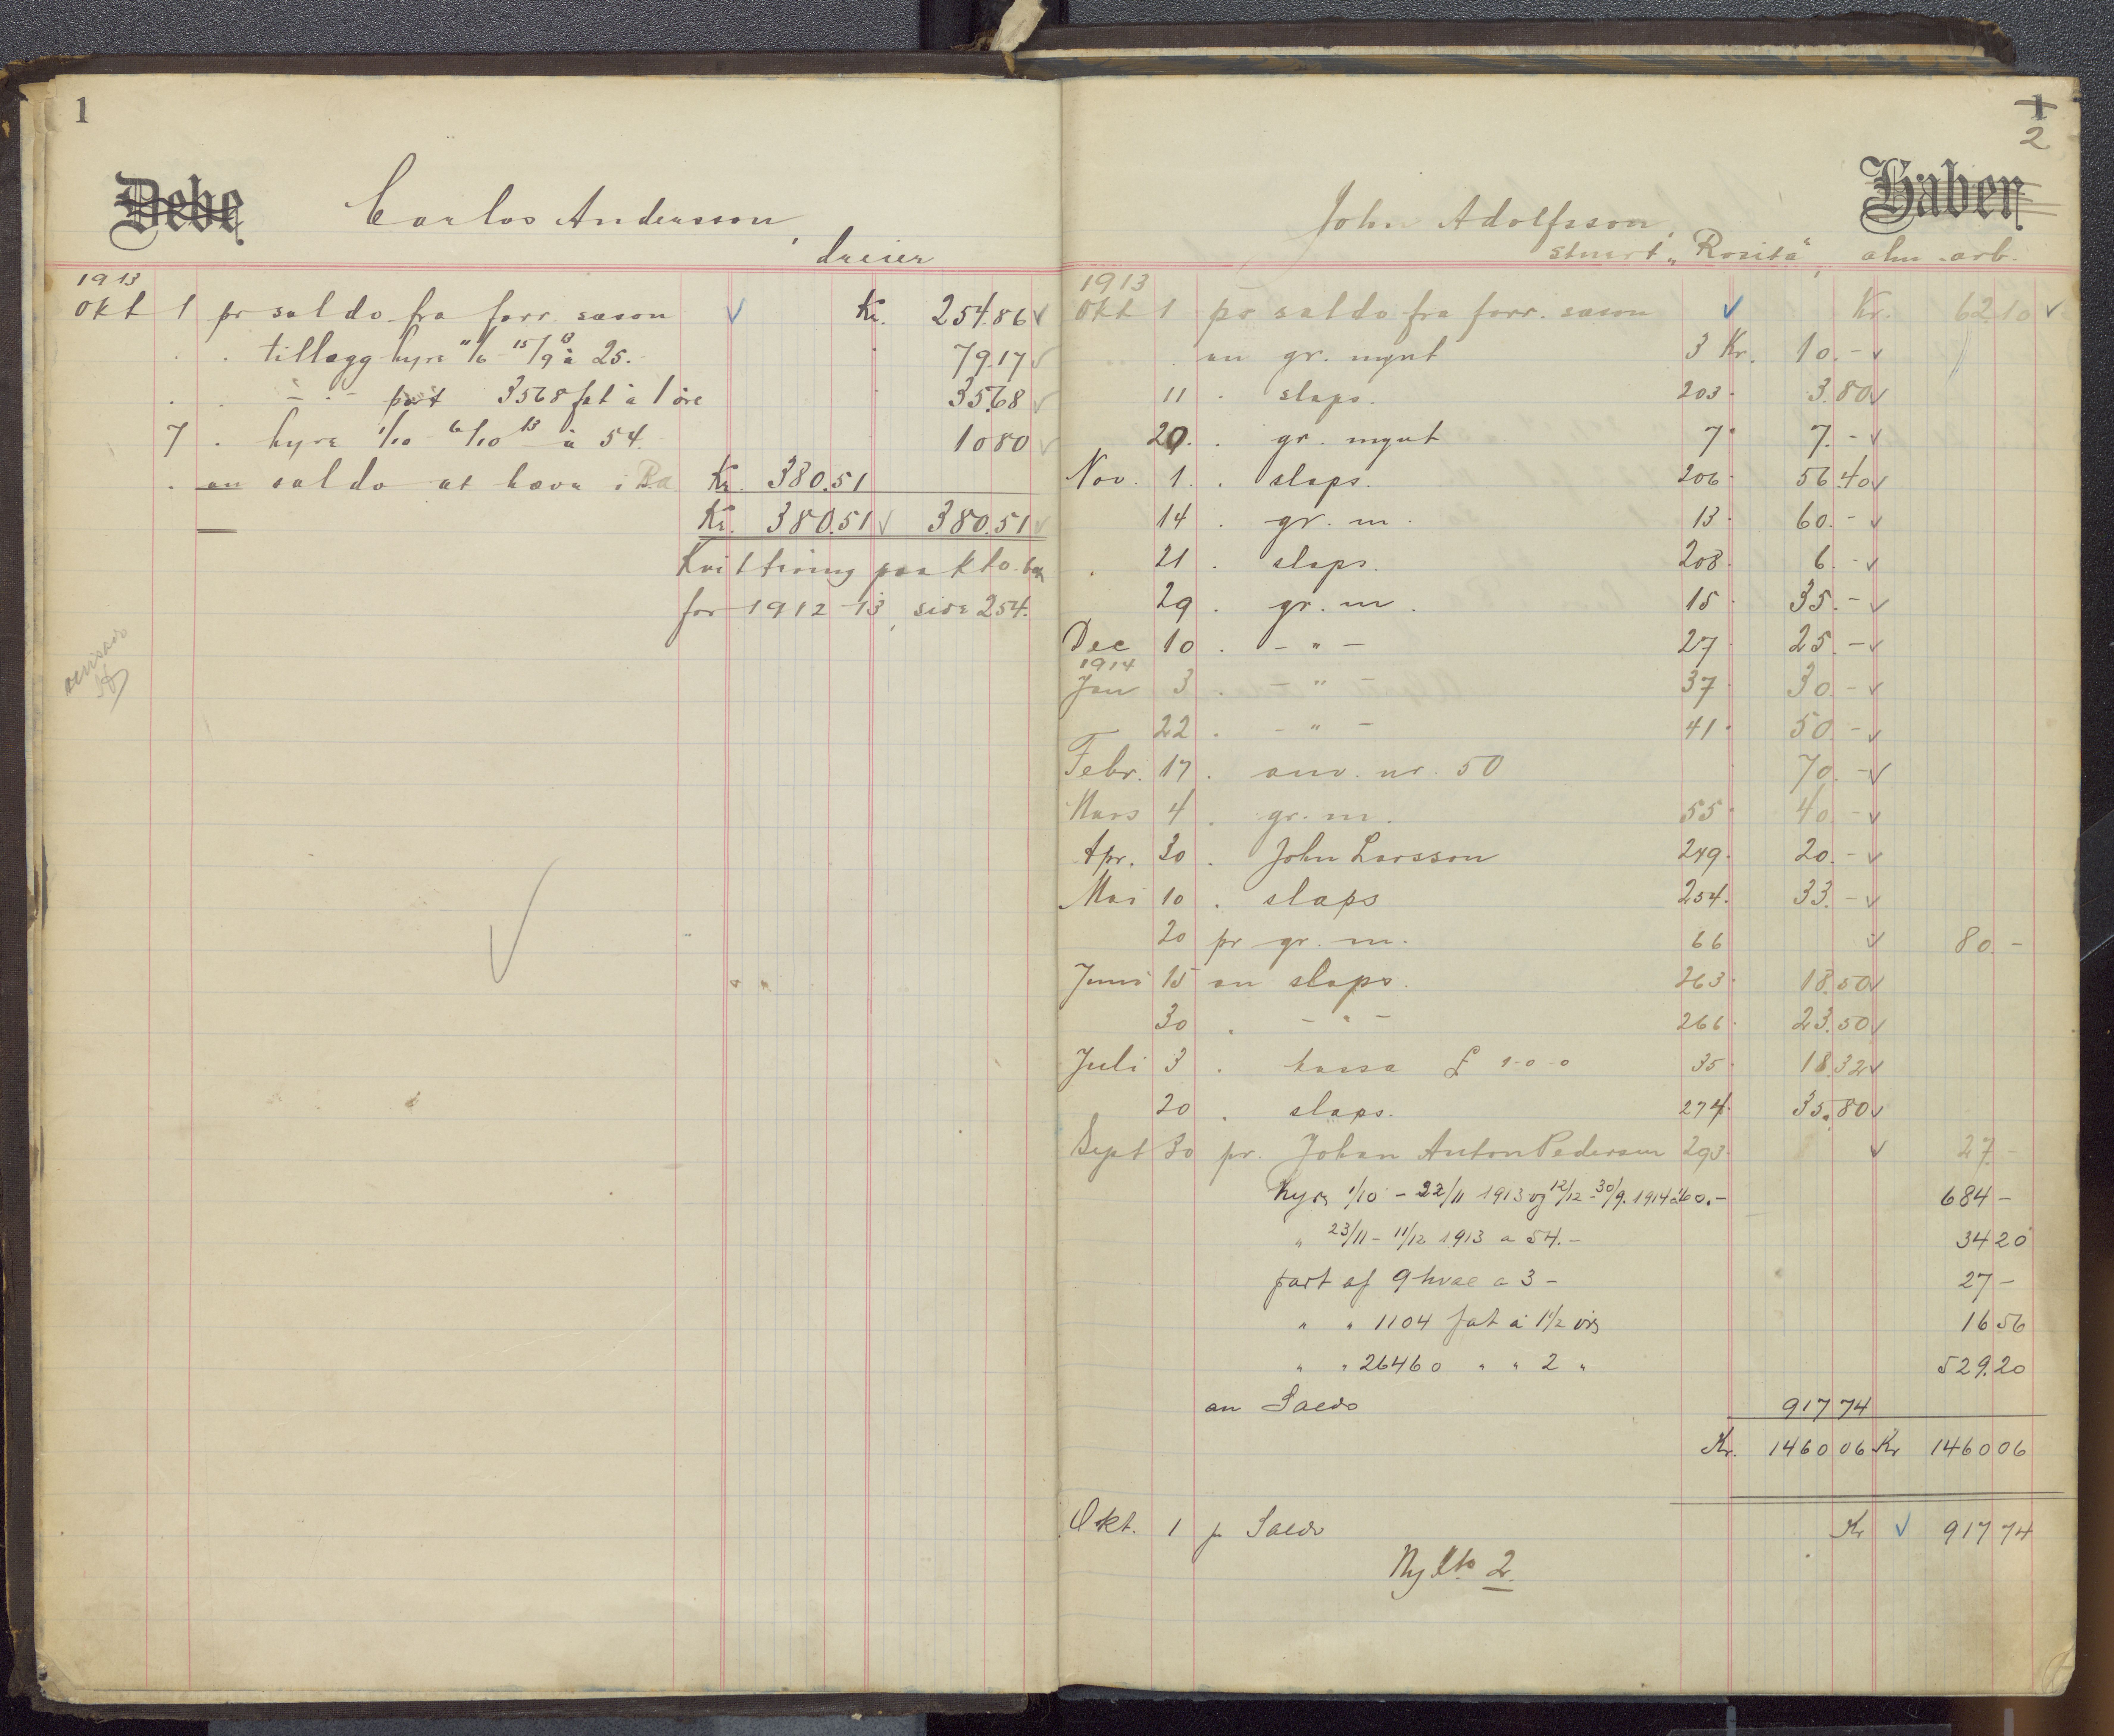 1
Debe
Carlos Andersson,
dreier
1913
Okt 1 pr saldo fra forr. sæson Kr. 254.86
. . tillægg hyre 11/6 - 15/9 13 à 25.- . 79.17
. . - " - part 3568 fat à 1 øre . 35.68
7 . hyre 1/10 - 6/10 13 à 54. 10 80
. an saldo at hæva i B.a. Kr. 380.51
Kr. 380.51 380.51
Kvittering paa kto. bok
for 1912-13, side 254.
revisor
1
2
Haben
John Adolfsson,
stuert "Rosita", alm. arb.
1913
Okt 1 pr saldo fra forr. sæson Kr. 62.10
. an gr. mynt 3 Kr. 10.-
11 . slaps. 203 3.80
20. . gr. mynt 7 7.-
Nov. 1. . slaps. 206 56.40
14 . gr. m. 13 60.-
. 21 . slaps. 208 6.-
29 . gr. m. 15 35.-
Dec 10 . - " - 27 25.-
1914
Jan 3 . - " - 37 30.-
22 . - " - 41 50.-
Febr. 17 . anv. nr. 50 70.-
Mars 4 . gr. m. 55 40.-
Apr. 30 . John Larsson 249 20.-
Mai 10 . slaps 254. 33.-
20 pr gr. m. 66 80.-
Juni 15 an slaps. 263 18.50
30 . - " - 266 23.50
Juli 3 . kassa £ 1-0-0 35 18.32
20 . slaps. 274 35.80
Sept 30 pr. Johan Anton Pedersen 293 27.-
hyre 1/10 - 22/11 1913 og 12/12 - 30/9. 1914 à 60.- 684 -
" 23/11 - 11/12 1913 a 54.- 34 20
part af 9 hval a 3 - 27 -
" " 1104 fat à 1 1/2 øre 16 56
" " 26460 " " 2 " 529.20
an Saldo 917 74
Kr. 1460 06 Kr 1460 06
Okt. 1 pr Saldo Kr 917 74
Ny Kto 2.